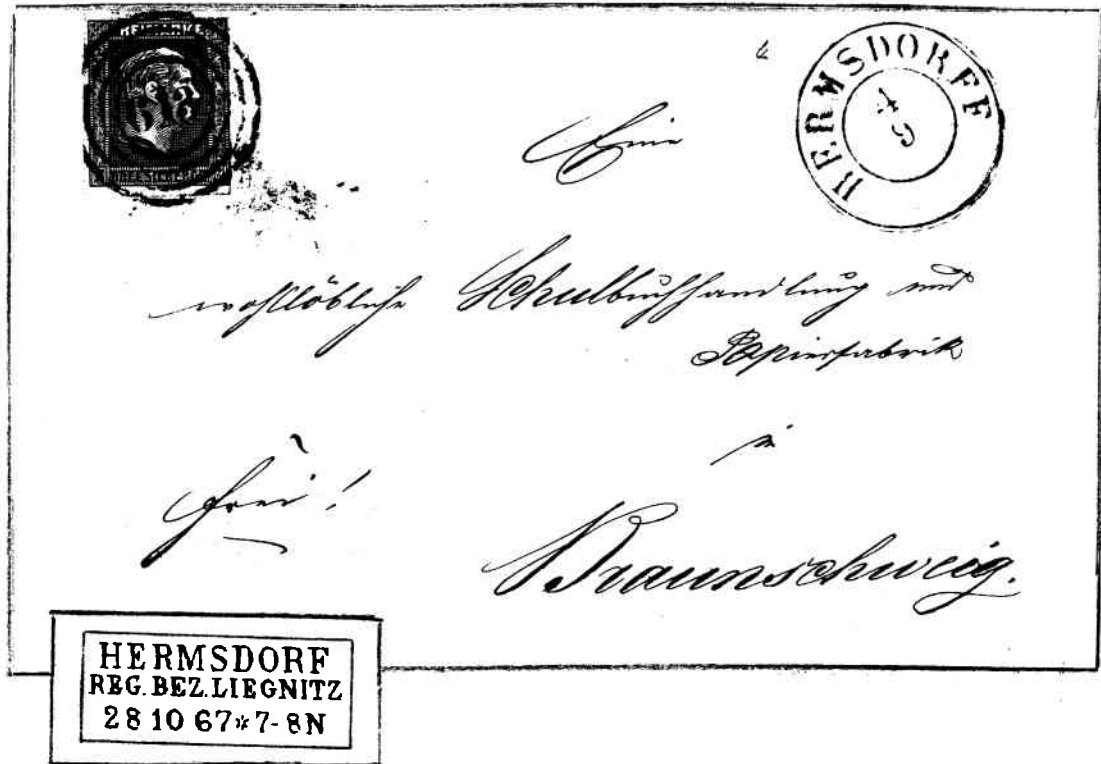 HERMSDORFF
Eine
wohllöbliche Schulbuchhandlung und
Papierfabrik
in
frei!
Braunschweig.
HERMSDORF
REG. BEZ. LIEGNITZ
28 10 67*7-8N